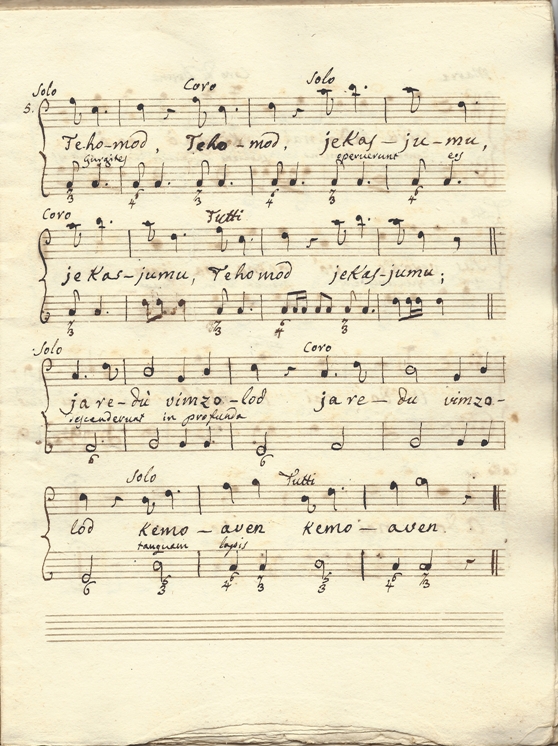 Solo Coro Solo
5.
Teho-mod, Teho-mod, jeKas-ju-mu,
gurgites operuerunt eos
7 3 4 6 7 3 4 6 7 3 4 6
Coro Tutti
jeKas-jumu, Tehomod jeKas-jumu;
7 3 7 3 4 6 7 3
Solo Coro
jare-dù vimzo-lod jare-du vimzo-
descenderunt in profunda
6 6
Solo Tutti
lod Kemo-aven Kemo-aven
tanquam lapis
6 6 3 4 6 7 3 6 3 4 6 7 3